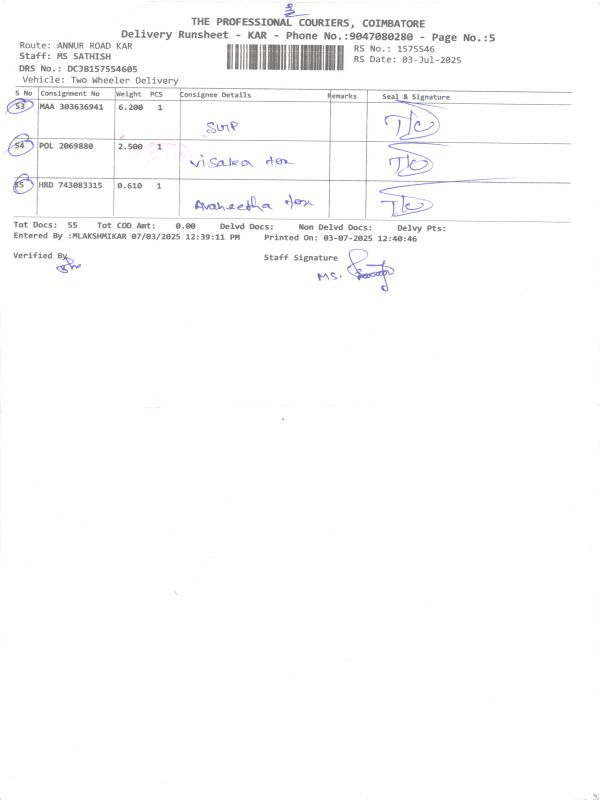 THE PROFESSIONAL COURIERS, COIMBATORE
Delivery Runsheet - KAR - Phone No.:9047080280 - Page No.:5
Route: ANNUR ROAD KAR RS No.: 1575546
Staff: MS SATHISH RS Date: 03-Jul-2025
DRS No.: DCJB157554605
Vehicle: Two Wheeler Delivery
S No Consignment No Weight PCS Consignee Details Remarks Seal & Signature
53 MAA 303636941 6.200 1
SMP T/C
54 POL 2069880 2.500 1
Visaka tex T/C
55 HRD 743083315 0.610 1
tex T/C
Tot Docs: 55 Tot COD Amt: 0.00 Delvd Docs: Non Delvd Docs: Delvy Pts:
Entered By :MLAKSHMIKAR 07/03/2025 12:39:11 PM Printed On: 03-07-2025 12:40:46
Verified By Staff Signature
MS.